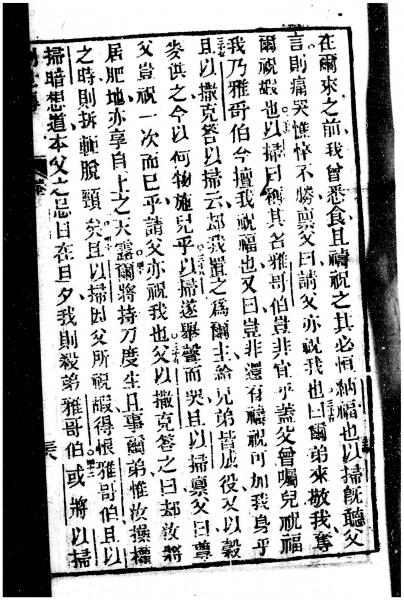 在爾來之前我曾悉食且禱祝之其必恒納福也以掃旣聽父
言則痛哭慘悴不勝禀父曰請父亦祝我也曰爾弟來敬我奪
爾祝嘏也以掃曰稱其名雅哥伯豈非宜乎蓋父曾囑兒祝福
我乃雅哥伯今擅我祝福也又曰豈非還有禱祝可加我身乎
且以撒克答以掃云却我置之爲爾主給兄弟皆成役又以穀
麥供之今以何物施兒乎以掃遂舉聲而哭且以掃禀父曰尊
父豈祝一次而已乎請父亦祝我也父以撒克答之曰却汝將
居肥地亦享自上之天露爾將持刀度生且事爾弟惟汝操權
之時則拆軛脫頸矣且以掃因父所祝嘏得恨雅哥伯且以
掃暗想道本父之忌日在旦夕我則殺弟雅哥伯或將以掃